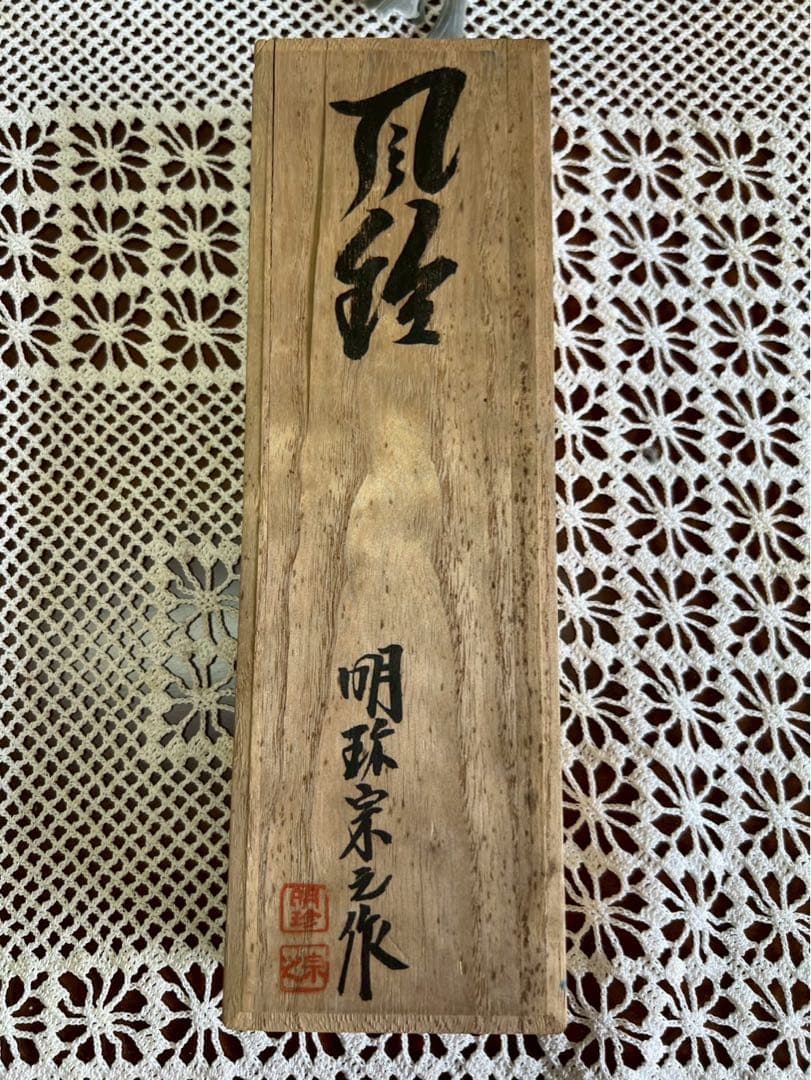 風鈴
明珎宗之作
明珍
宗之